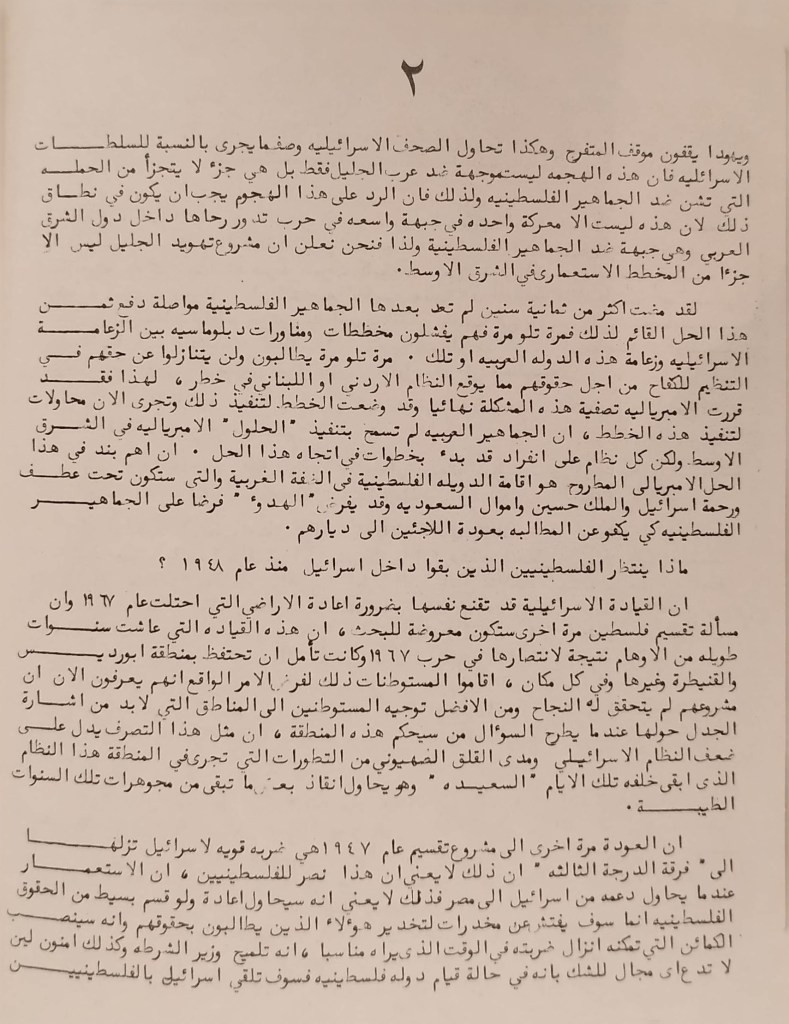 ٢
ويهودا يقفون موقف المتفرج وهكذا تحاول الصحف الاسرائيليه وصفما يجرى بالنسبة للسلطات
الاسرائليه فان هذه الهجمه ليست موجهة ضد عرب الجليل فقط بل هي جزء لا يتجزأ من الحمله
التي تشن ضد الجماهير الفلسطينيه ولذلك فان الرد على هذا الهجوم يجب ان يكون في نطاق
ذلك لان هذه ليست الا معركة واحده في جبهة واسعه في حرب تدور رحاها داخل دول الشرق
العربي وهي جبهة ضد الجماهير الفلسطينية ولذا فنحن نعلن ان مشروع تهويد الجليل ليس الا
جزءا من المخطط الاستعمارى في الشرق الاوسط.
لقد مضت اكثر من ثمانية سنين لم تعد بعدها الجماهير الفلسطينية مواصلة دفع ثمن
هذا الحل القائم لذلك فمرة تلو مرة فهم يفشلون مخططات ومناورات دبلوماسيه بين الزعامة
الاسرائيليه وزعامة هذه الدوله العربيه او تلك . مرة تلو مرة يطالبون ولن يتنازلوا عن حقهم في
التنظيم للكفاح من اجل حقوقهم مما يوقع النظام الاردني او اللبناني في خطر ، لهذا فقد
قررت الامبرياليه تصفية هذه المشكلة نهائيا وقد وضعت الخطط لتنفيذ ذلك وتجرى الان محاولات
لتنفيذ هذه الخطط ، ان الجماهير العربيه لم تسمح بتنفيذ "الحلول" الامبرياليه في الشرق
الاوسط ولكن كل نظام على انفراد قد بدء بخطوات في اتجاه هذا الحل . ان اهم بند في هذا
الحل الامبريالى المطروح هو اقامة الدويله الفلسطينية في الضفة الغربية والتي ستكون تحت عطف
ورحمة اسرائيل والملك حسين واموال السعوديه وقد يفرض "الهدوء" فرضا على الجماهير
الفلسطينيه كي يكفو عن المطالبه بعودة اللاجئين الى ديارهم .
ماذا ينتظار الفلسطينيين الذين بقوا داخل اسرائيل منذ عام ١٩٤٨ ؟
ان القيادة الاسرائيلية قد تقنع نفسها بضرورة اعادة الاراضي التي احتلت عام ١٩٦٧ وان
مسألة تقسيم فلسطين مرة اخرى ستكون معروضة للبحث ، ان هذه القياده التي عاشت سنوات
طويله من الاوهام نتيجة لانتصارها في حرب ١٩٦٧ وكانت تأمل ان تحتفظ بمنطقة ابورديس
والقنيطرة وغيرها وفي كل مكان ، اقاموا المستوطنات ذلك لفرض الامر الواقع انهم يعرفون الان ان
مشروعهم لم يتحقق له النجاح ومن الافضل توجيه المستوطنين الى المناطق التي لابد من اشارة
الجدل حولها عندما يطرح السوءال من سيحكم هذه المنطقة ، ان مثل هذا التصرف يدل على
ضعف النظام الاسرائيلي ومدى القلق الصهيوني من التطورات التي تجرى في المنطقة هذا النظام
الذى ابقى خلفه تلك الايام "السعيده" وهو يحاول انقاذ بعض ما تبقى من مجوهرات تلك السنوات
الطيبة .
ان العودة مرة اخرى الى مشروع تقسيم عام ١٩٤٧ هي ضربه قويه لاسرائيل تزلها
الى "فرقة الدرجة الثالثه" ان ذلك لايعني ان هذا نصر للفلسطينيين ، ان الاستعمار
عندما يحاول دعمه من اسرائيل الى مصر فذلك لا يعني انه سيحاول اعادة ولو قسم بسيط من الحقوق
الفلسطينيه انما سوف يفتش عن مخدرات لتخدير هوءلاء الذين يطالبون بحقوقهم وانه سينصب
الكمائن التي تمكنه انزال ضربته في الوقت الذى يراه مناسبا ، انه تلميح وزير الشرطه وكذلك امنون لين
لا تدع اى مجال للشك بانه في حالة قيام دوله فلسطينيه فسوف تلقي اسرائيل بالفلسطينيين